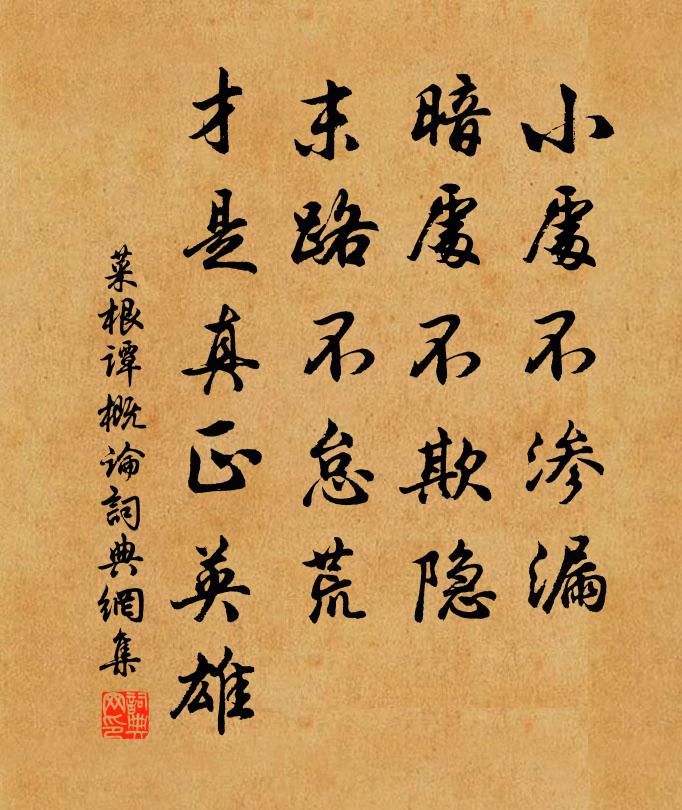 小處不渗漏
暗處不欺隐
末路不怠荒
才是真正英雄
菜根谭概论詞典網集
詞典网印